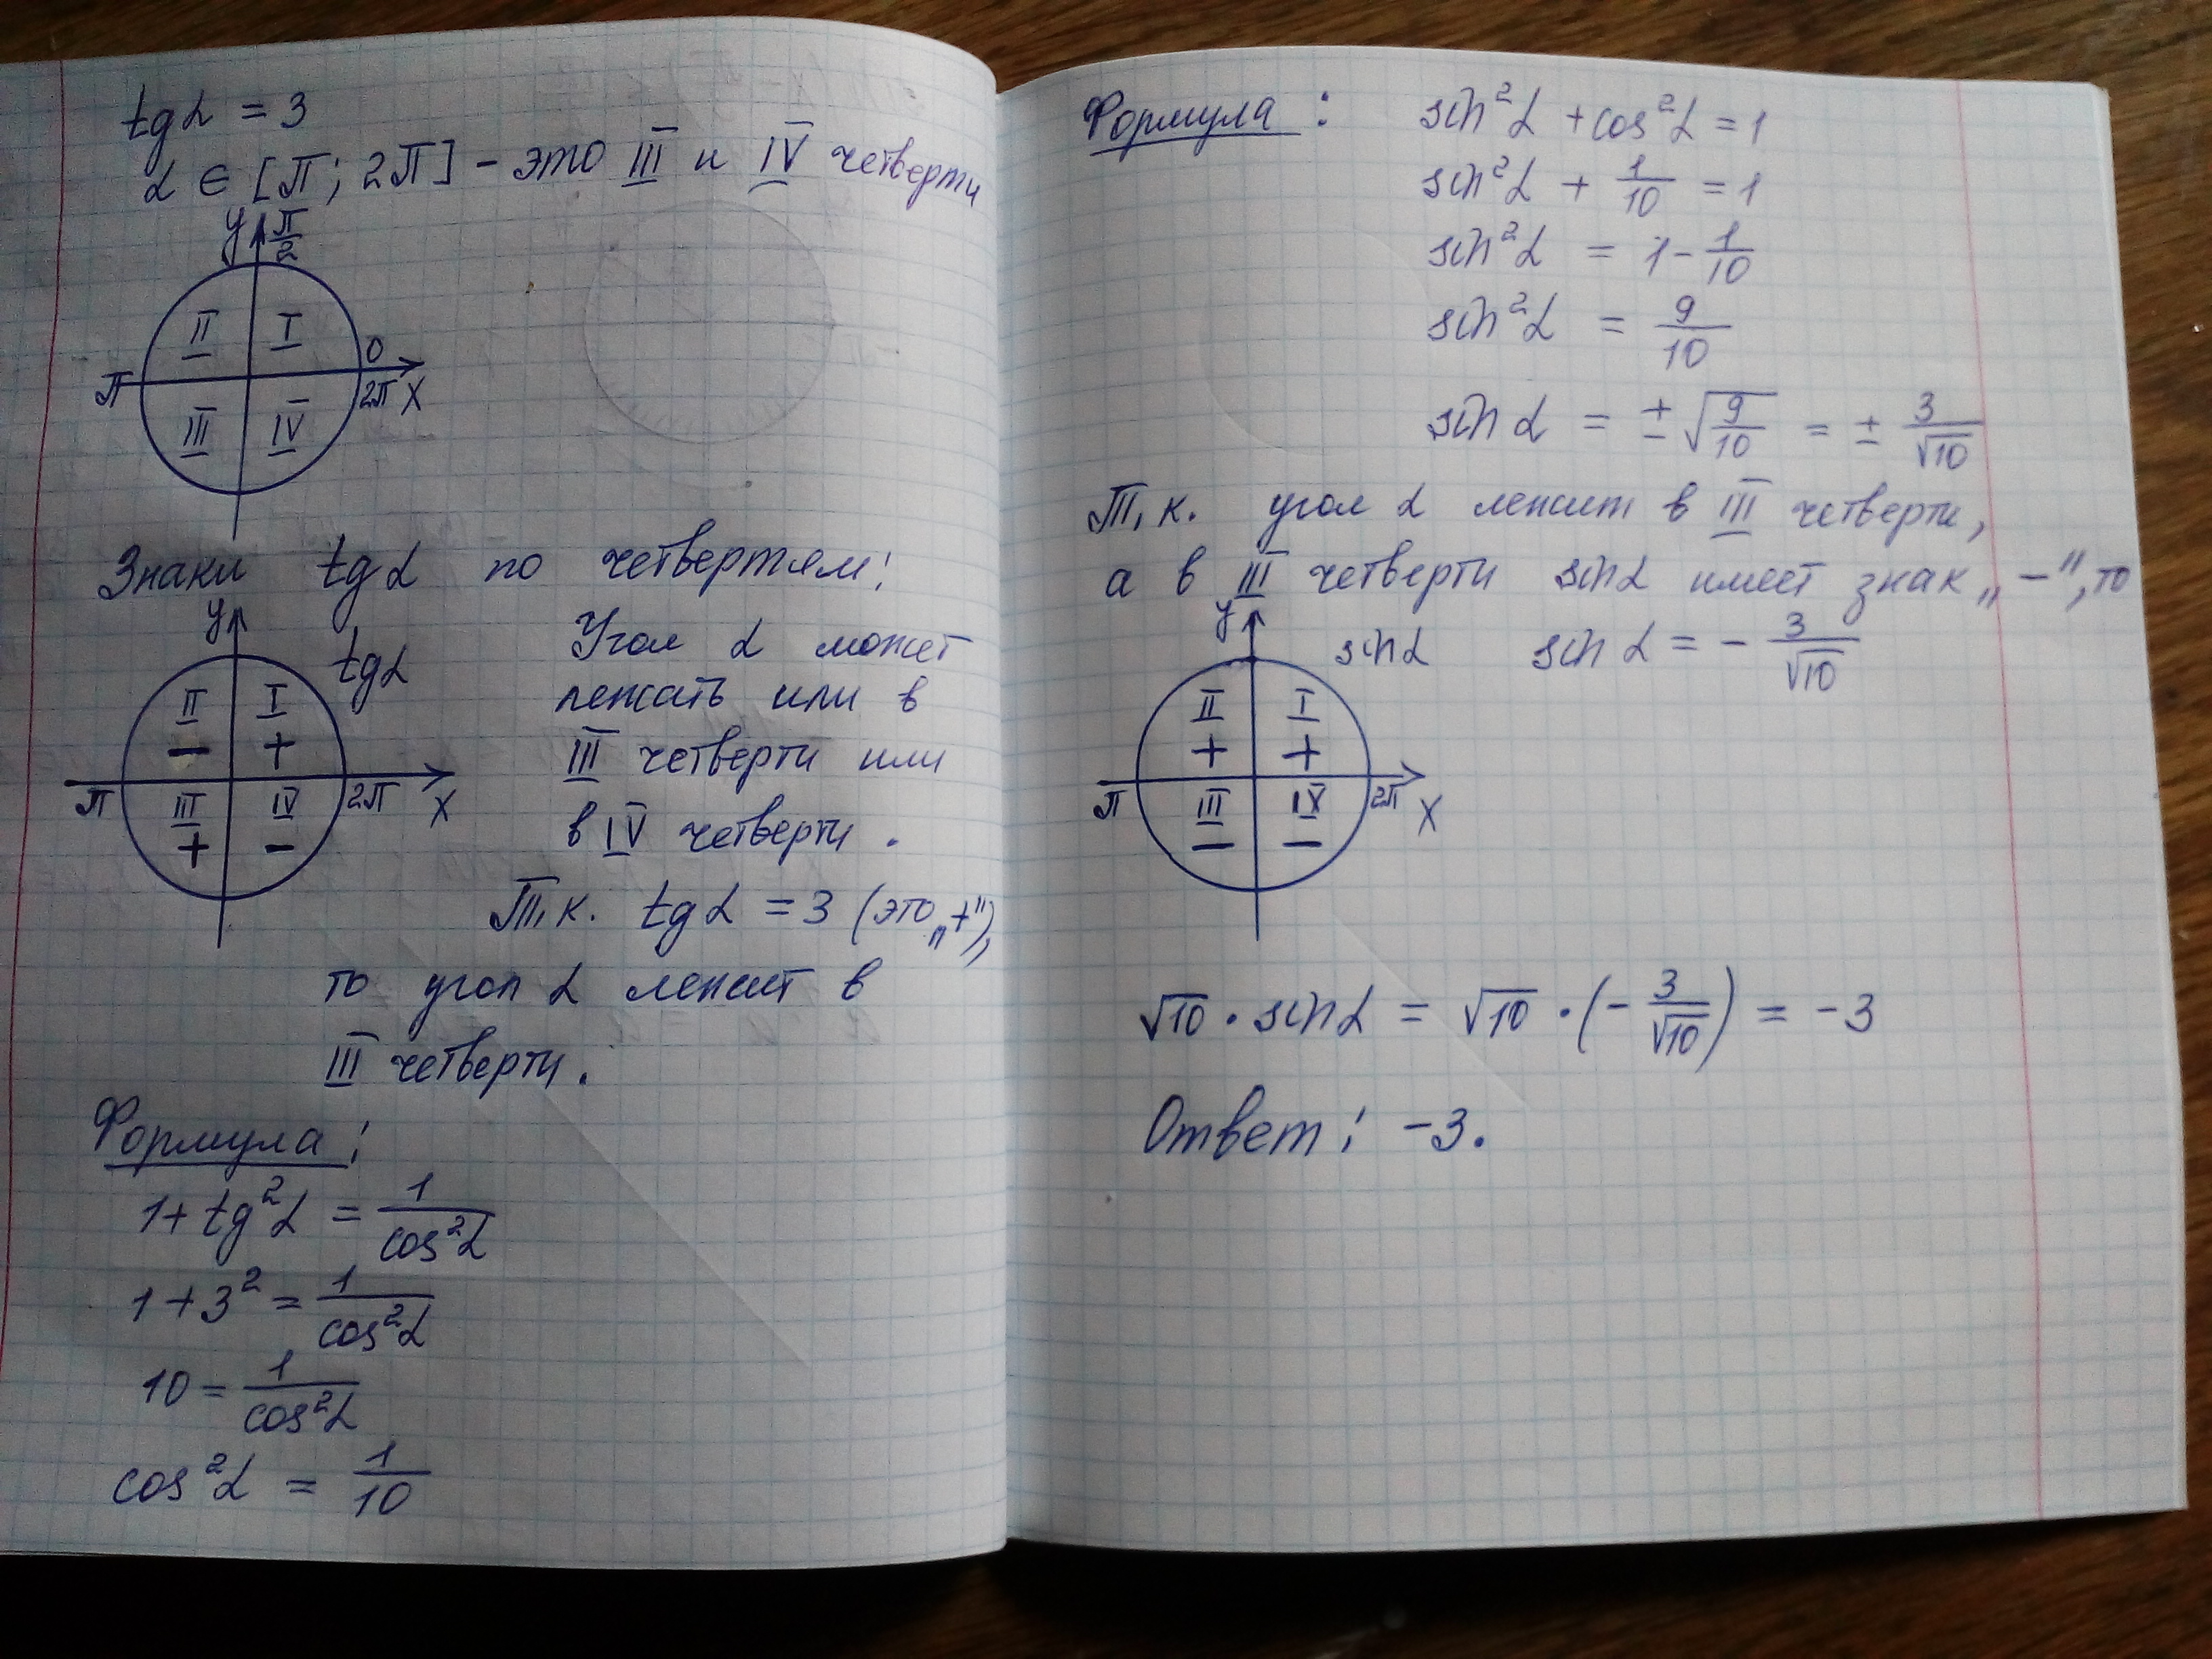 tgα = 3
α ∈ [π; 2π] – это III и IV четверти
y π/2
II I
0
π 2π x
III IV
Знаки tgα по четвертям:
y
tgα
II I
– +
π 2π x
III IV
+ –
Угол α может
лежать или в
III четверти или
в IV четверти.
Т.к. tgα = 3 (это „+"),
то угол α лежит в
III четверти.
Формула:
1 + tg²α = 1/cos²α
1 + 3² = 1/cos²α
10 = 1/cos²α
cos²α = 1/10
Формула: sin²α + cos²α = 1
sin²α + 1/10 = 1
sin²α = 1 – 1/10
sin²α = 9/10
sin α = ±√(9/10) = ± 3/√10
Т.к. угол α лежит в III четверти,
а в III четверти sinα имеет знак „–", то
y
sinα sin α = – 3/√10
II I
+ +
π 2π x
III IX
– –
√10 · sinα = √10 · (– 3/√10) = –3
Ответ: –3.